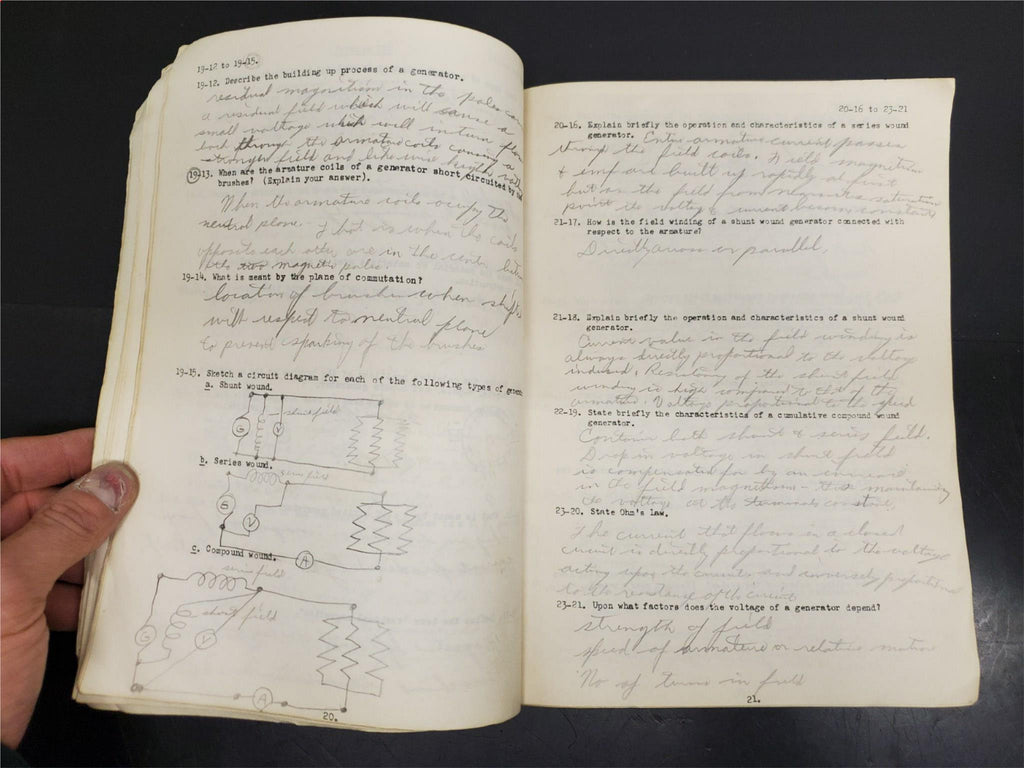 19-12 to 19-15.
19-12. Describe the building up process of a generator.
residual magnetism in the poles
a residual field which will cause a
small voltage which will in turn flow
back through the armature coils causing a
stronger field and likewise high
19-13. When are the armature coils of a generator short circuited by
brushes? (Explain your answer).
When the armature coils occupy the
neutral plane. that is when the coils
opposite each other are in the center
the two magnetic poles.
19-14. What is meant by the plane of commutation?
location of brushes when shifted
with respect to neutral plane
to prevent sparking of the brushes
19-15. Sketch a circuit diagram for each of the following types of
a. Shunt wound.
shunt field
G
V
b. Series wound.
series field
G
V
A
c. Compound wound.
series field
shunt field
G
V
A
20.
20-16 to 23-21
20-16. Explain briefly the operation and characteristics of a series wound
generator. Entire armature current passes
through the field coils. Field magnetism
& emf are built up rapidly at first
but as the field from nearness saturation
point its voltage & current become constant
21-17. How is the field winding of a shunt wound generator connected with
respect to the armature?
Directly across or parallel.
21-18. Explain briefly the operation and characteristics of a shunt wound
generator.
Current value in the field winding is
always directly proportional to the voltage
induced. Resistance of the shunt field
winding is high compared to that of the
armature. Voltage proportional to the speed
22-19. State briefly the characteristics of a cumulative compound wound
generator.
Contains both shunt & series field.
Drop in voltage in shunt field
is compensated for by an increase
in the field magnetism - thus maintaining
the voltage at the terminals constant.
23-20. State Ohm's law.
The current that flows in a closed
circuit is directly proportional to the voltage
acting upon the circuit, and inversely proportional
to the resistance of the circuit
23-21. Upon what factors does the voltage of a generator depend?
strength of field
speed of armature or relative motion
No of turns in field
21.